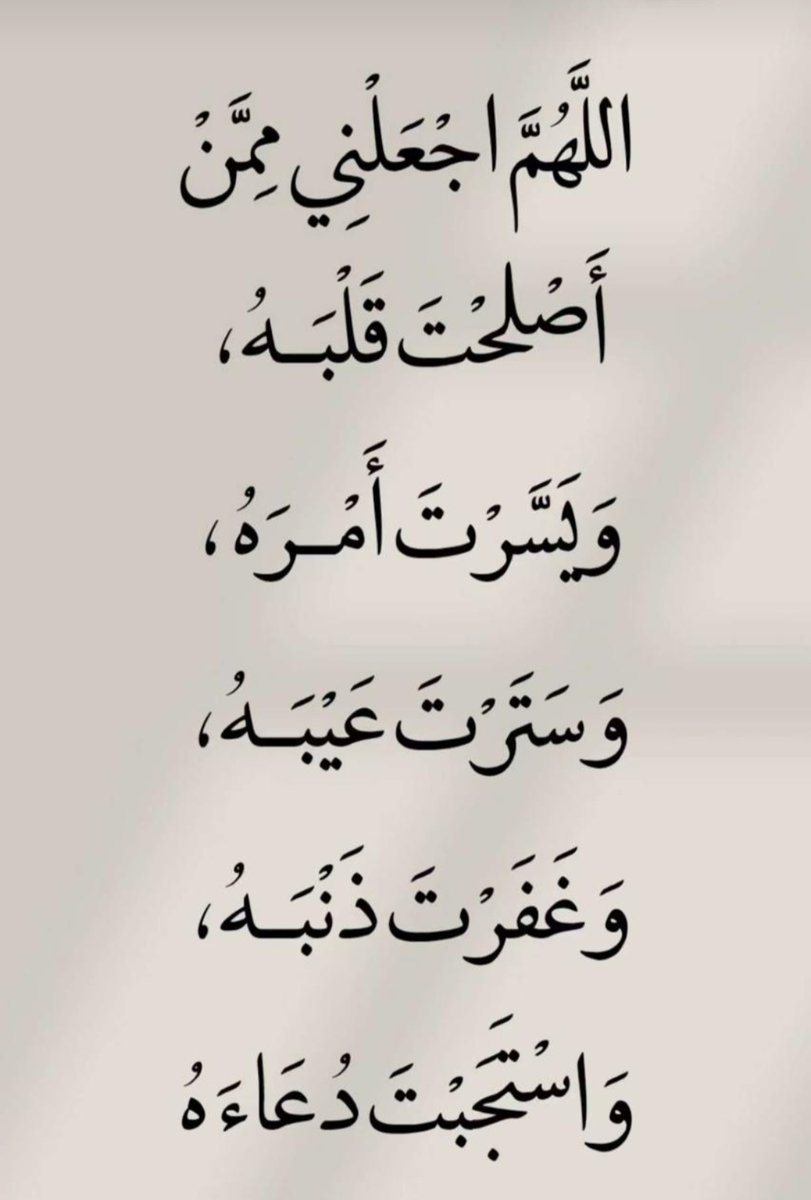 اللَّهُمَّ اجْعَلْنِي مِمَّنْ
أَصْلَحْتَ قَلْبَـهُ،
وَيَسَّرْتَ أَمْـرَهُ،
وَسَتَرْتَ عَيْبَـهُ،
وَغَفَرْتَ ذَنْبَـهُ،
وَاسْتَجَبْتَ دُعَاءَهُ